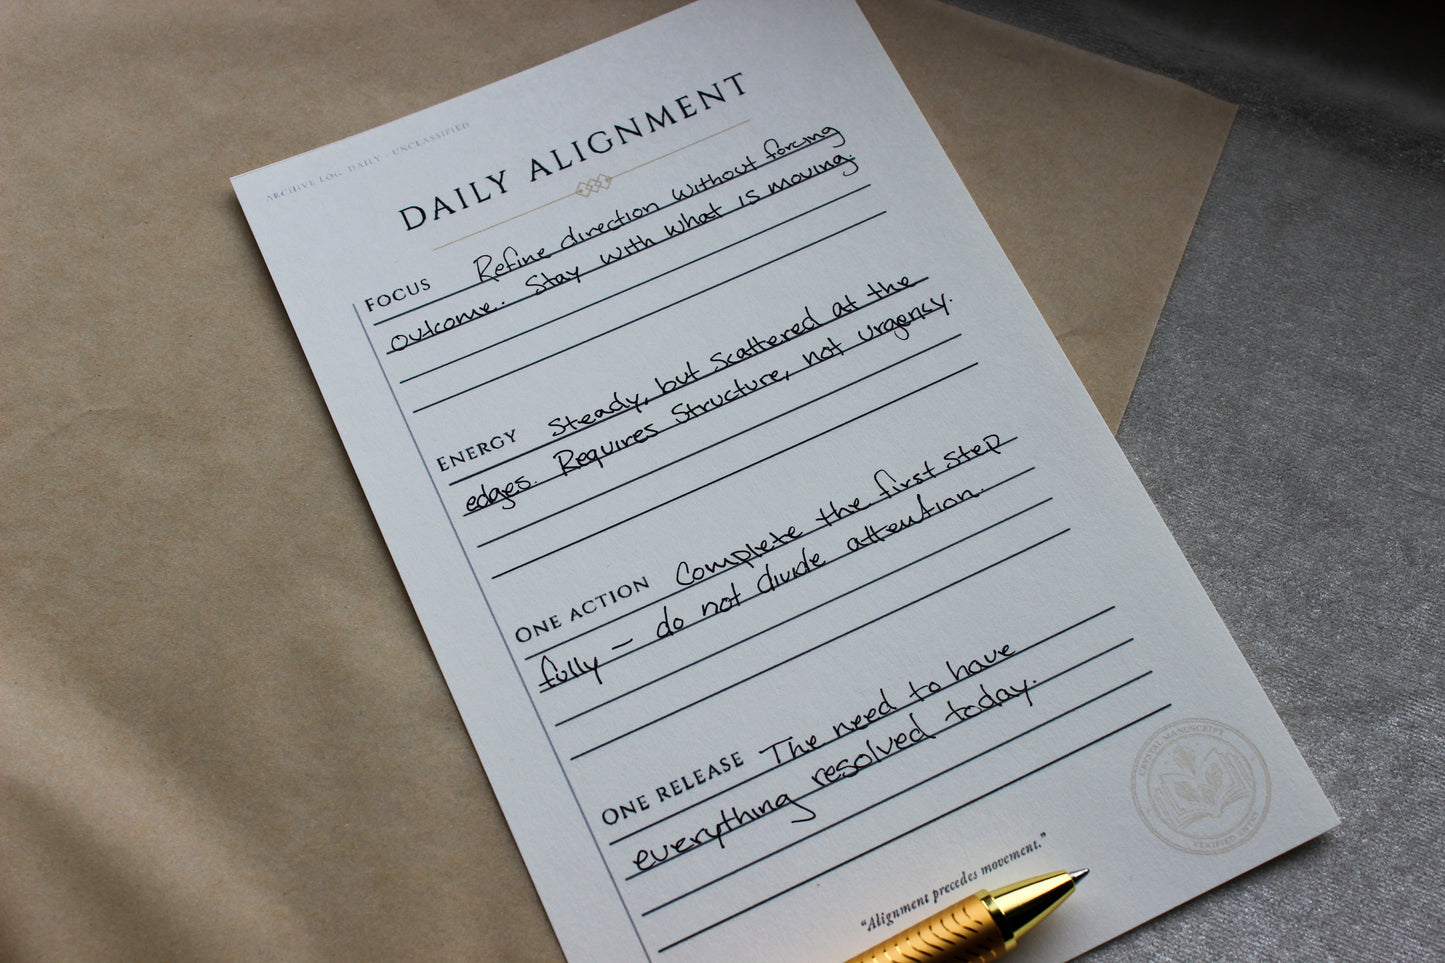 ARCHIVE LOG: DAILY · UNCLASSIFIED
DAILY ALIGNMENT
FOCUS Refine direction without forcing
outcome. Stay with what is moving.
ENERGY Steady, but scattered at the
edges. Requires structure, not urgency.
ONE ACTION Complete the first step
fully — do not divide attention.
ONE RELEASE The need to have
everything resolved today.
CRYSTAL MANUSCRIPT
VERIFIED
"Alignment precedes movement."